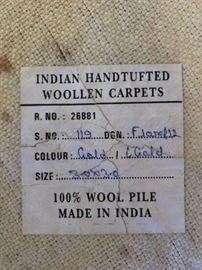 INDIAN HANDTUFTED
WOOLLEN CARPETS
R. NO.: 26881
S. NO.: 119 DGN.:
COLOUR: Gold / L Gold
SIZE:
100% WOOL PILE
MADE IN INDIA